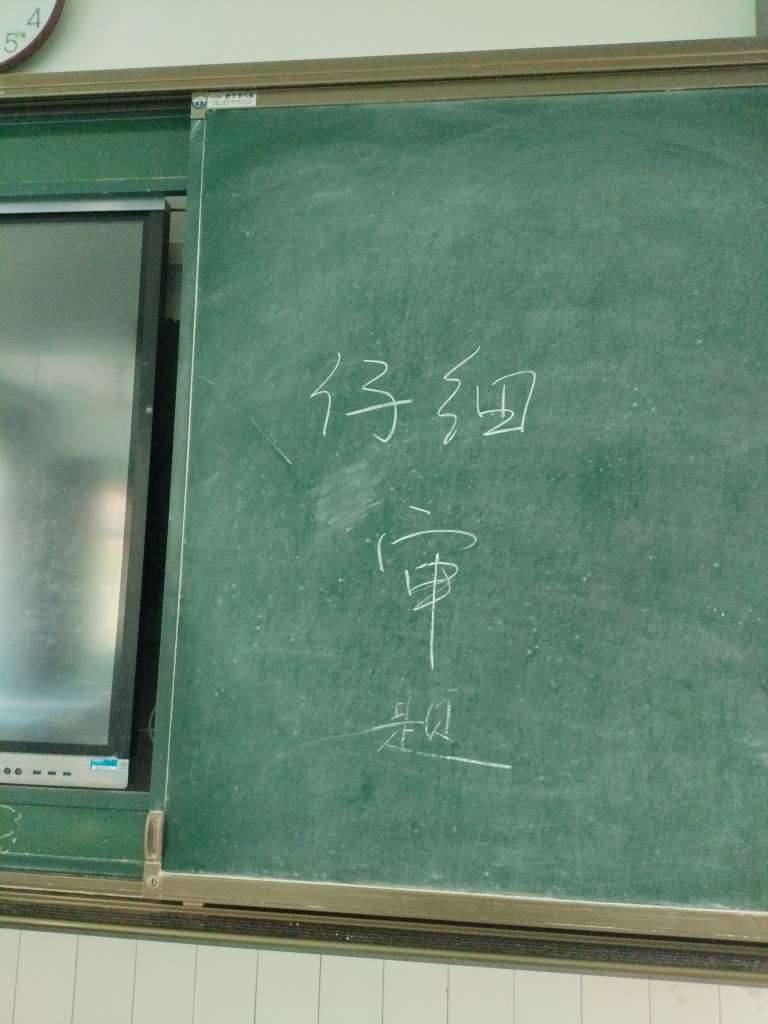 4
5
仔细
审
题